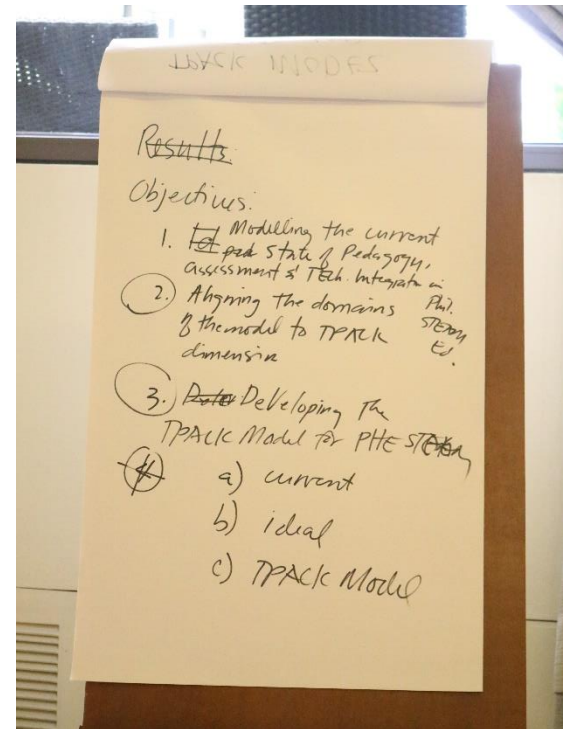 TPACK MODEL
Results
Objectives:
1. Modelling the current
State of Pedagogy,
assessment & Tech. Integratn in
Phil.
STEAM
Ed.
2. Aligning the domains
of the model to TPACK
dimension
3. Developing The
TPACK Model for PHE STEAM
4
a) current
b) ideal
c) TPACK Model